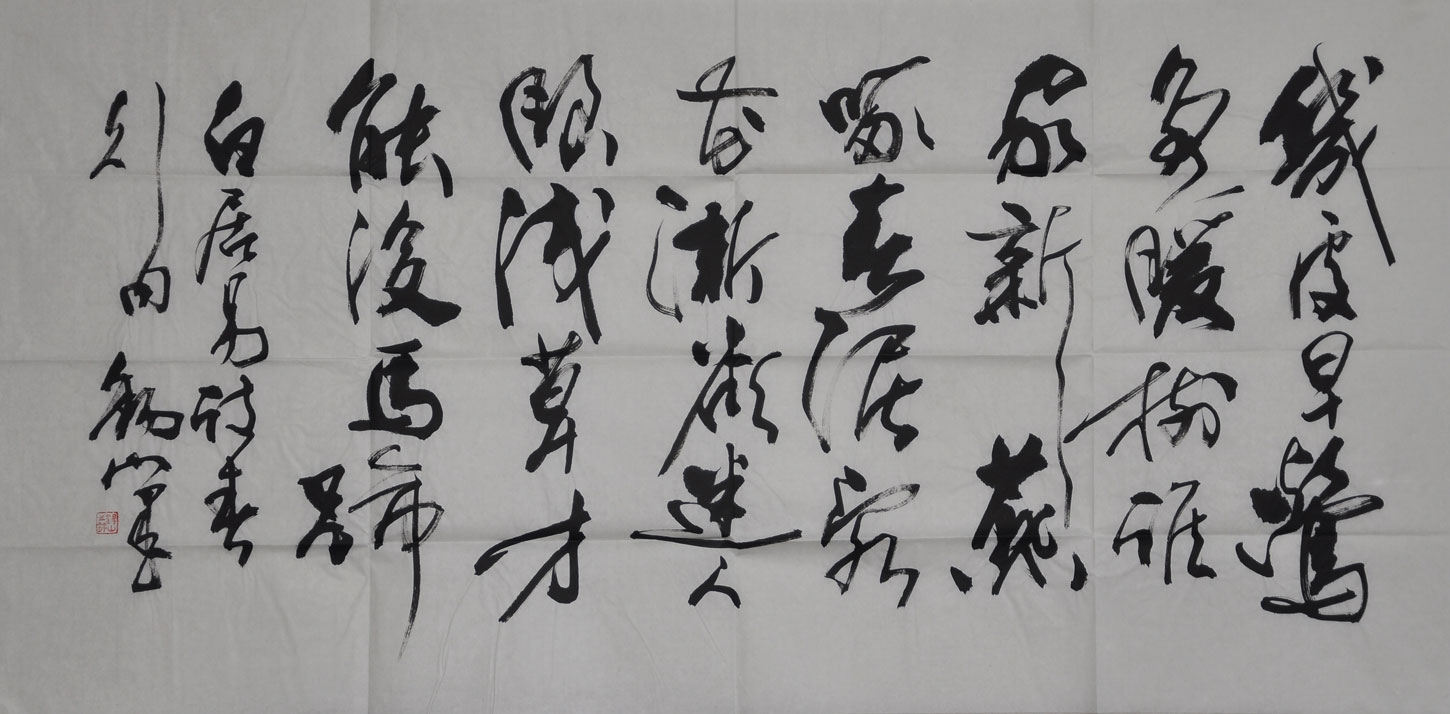 幾處早鶯
爭暖樹誰
家新燕
啄春泥亂
花漸欲迷人
眼淺草才
能没馬蹄
白居易詩春